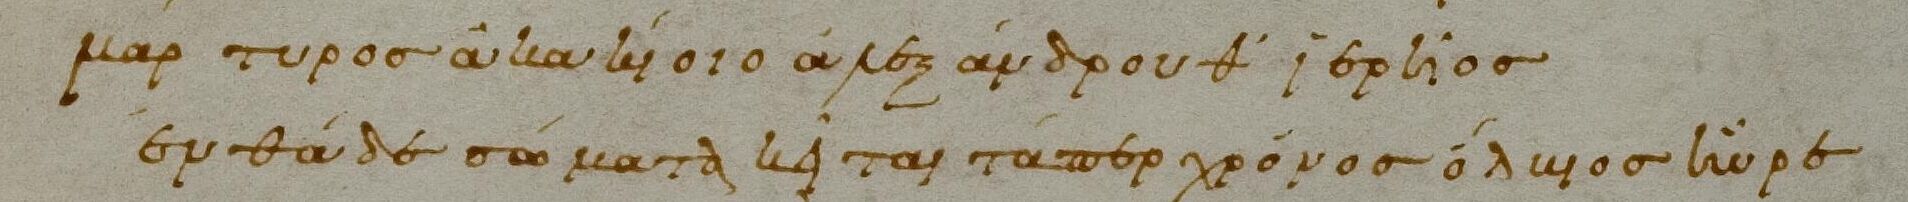 μάρτυρος ἀκακίοιο ἀλεξάνδρου θ' ϊερῆος
ἐνθάδε σώματα κεῖται τάπερ χρόνος ὄλβιος ηὗρε